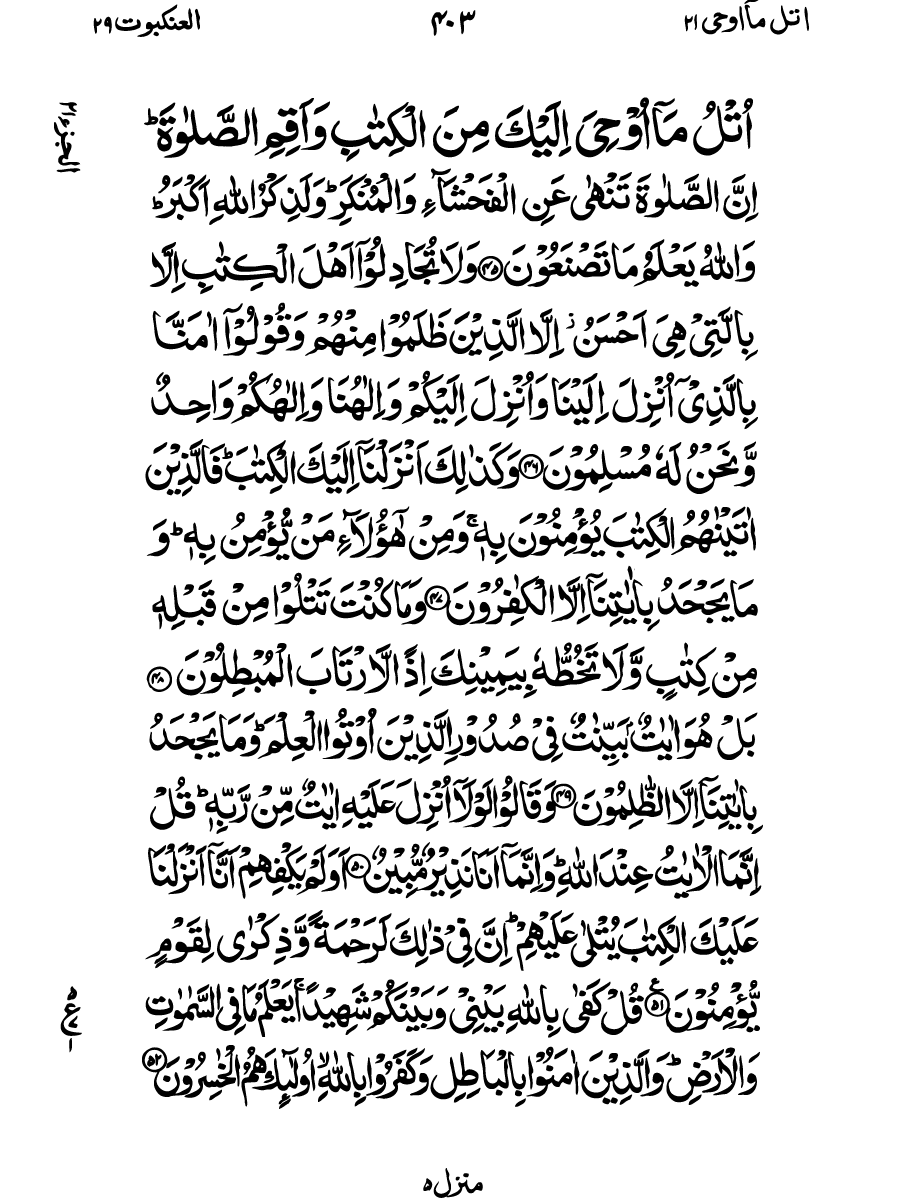 اتل مآاوحی ۲۱
۴۰۳
العنکبوت ۲۹
الجزء ۲۱
اُتْلُ مَاۤ اُوْحِیَ اِلَیْكَ مِنَ الْكِتٰبِ وَاَقِمِ الصَّلٰوةَ ؕ
اِنَّ الصَّلٰوةَ تَنْهٰی عَنِ الْفَحْشَآءِ وَالْمُنْكَرِ ؕ وَلَذِكْرُ اللّٰهِ اَكْبَرُ ؕ
وَاللّٰهُ یَعْلَمُ مَا تَصْنَعُوْنَ ﴿۴۵﴾ وَلَا تُجَادِلُوْۤا اَهْلَ الْكِتٰبِ اِلَّا
بِالَّتِیْ هِیَ اَحْسَنُ ۖ اِلَّا الَّذِیْنَ ظَلَمُوْا مِنْهُمْ وَقُوْلُوْۤا اٰمَنَّا
بِالَّذِیْۤ اُنْزِلَ اِلَیْنَا وَاُنْزِلَ اِلَیْكُمْ وَاِلٰهُنَا وَاِلٰهُكُمْ وَاحِدٌ
وَّنَحْنُ لَهٗ مُسْلِمُوْنَ ﴿۴۶﴾ وَكَذٰلِكَ اَنْزَلْنَاۤ اِلَیْكَ الْكِتٰبَ ؕ فَالَّذِیْنَ
اٰتَیْنٰهُمُ الْكِتٰبَ یُؤْمِنُوْنَ بِهٖ ۚ وَمِنْ هٰۤؤُلَآءِ مَنْ یُّؤْمِنُ بِهٖ ؕ وَ
مَا یَجْحَدُ بِاٰیٰتِنَاۤ اِلَّا الْكٰفِرُوْنَ ﴿۴۷﴾ وَمَا كُنْتَ تَتْلُوْا مِنْ قَبْلِهٖ
مِنْ كِتٰبٍ وَّلَا تَخُطُّهٗ بِیَمِیْنِكَ اِذًا لَّارْتَابَ الْمُبْطِلُوْنَ ﴿۴۸﴾
بَلْ هُوَ اٰیٰتٌۢ بَیِّنٰتٌ فِیْ صُدُوْرِ الَّذِیْنَ اُوْتُوا الْعِلْمَ ؕ وَمَا یَجْحَدُ
بِاٰیٰتِنَاۤ اِلَّا الظّٰلِمُوْنَ ﴿۴۹﴾ وَقَالُوْا لَوْلَاۤ اُنْزِلَ عَلَیْهِ اٰیٰتٌ مِّنْ رَّبِّهٖ ؕ قُلْ
اِنَّمَا الْاٰیٰتُ عِنْدَ اللّٰهِ ؕ وَاِنَّمَاۤ اَنَا نَذِیْرٌ مُّبِیْنٌ ﴿۵۰﴾ اَوَلَمْ یَكْفِهِمْ اَنَّاۤ اَنْزَلْنَا
عَلَیْكَ الْكِتٰبَ یُتْلٰی عَلَیْهِمْ ؕ اِنَّ فِیْ ذٰلِكَ لَرَحْمَةً وَّذِكْرٰی لِقَوْمٍ
یُّؤْمِنُوْنَ ﴿۵۱﴾ قُلْ كَفٰی بِاللّٰهِ بَیْنِیْ وَبَیْنَكُمْ شَهِیْدًا ۚ یَعْلَمُ مَا فِی السَّمٰوٰتِ
وَالْاَرْضِ ؕ وَالَّذِیْنَ اٰمَنُوْا بِالْبَاطِلِ وَكَفَرُوْا بِاللّٰهِ ۙ اُولٰٓئِكَ هُمُ الْخٰسِرُوْنَ ﴿۵۲﴾
منزل ۵